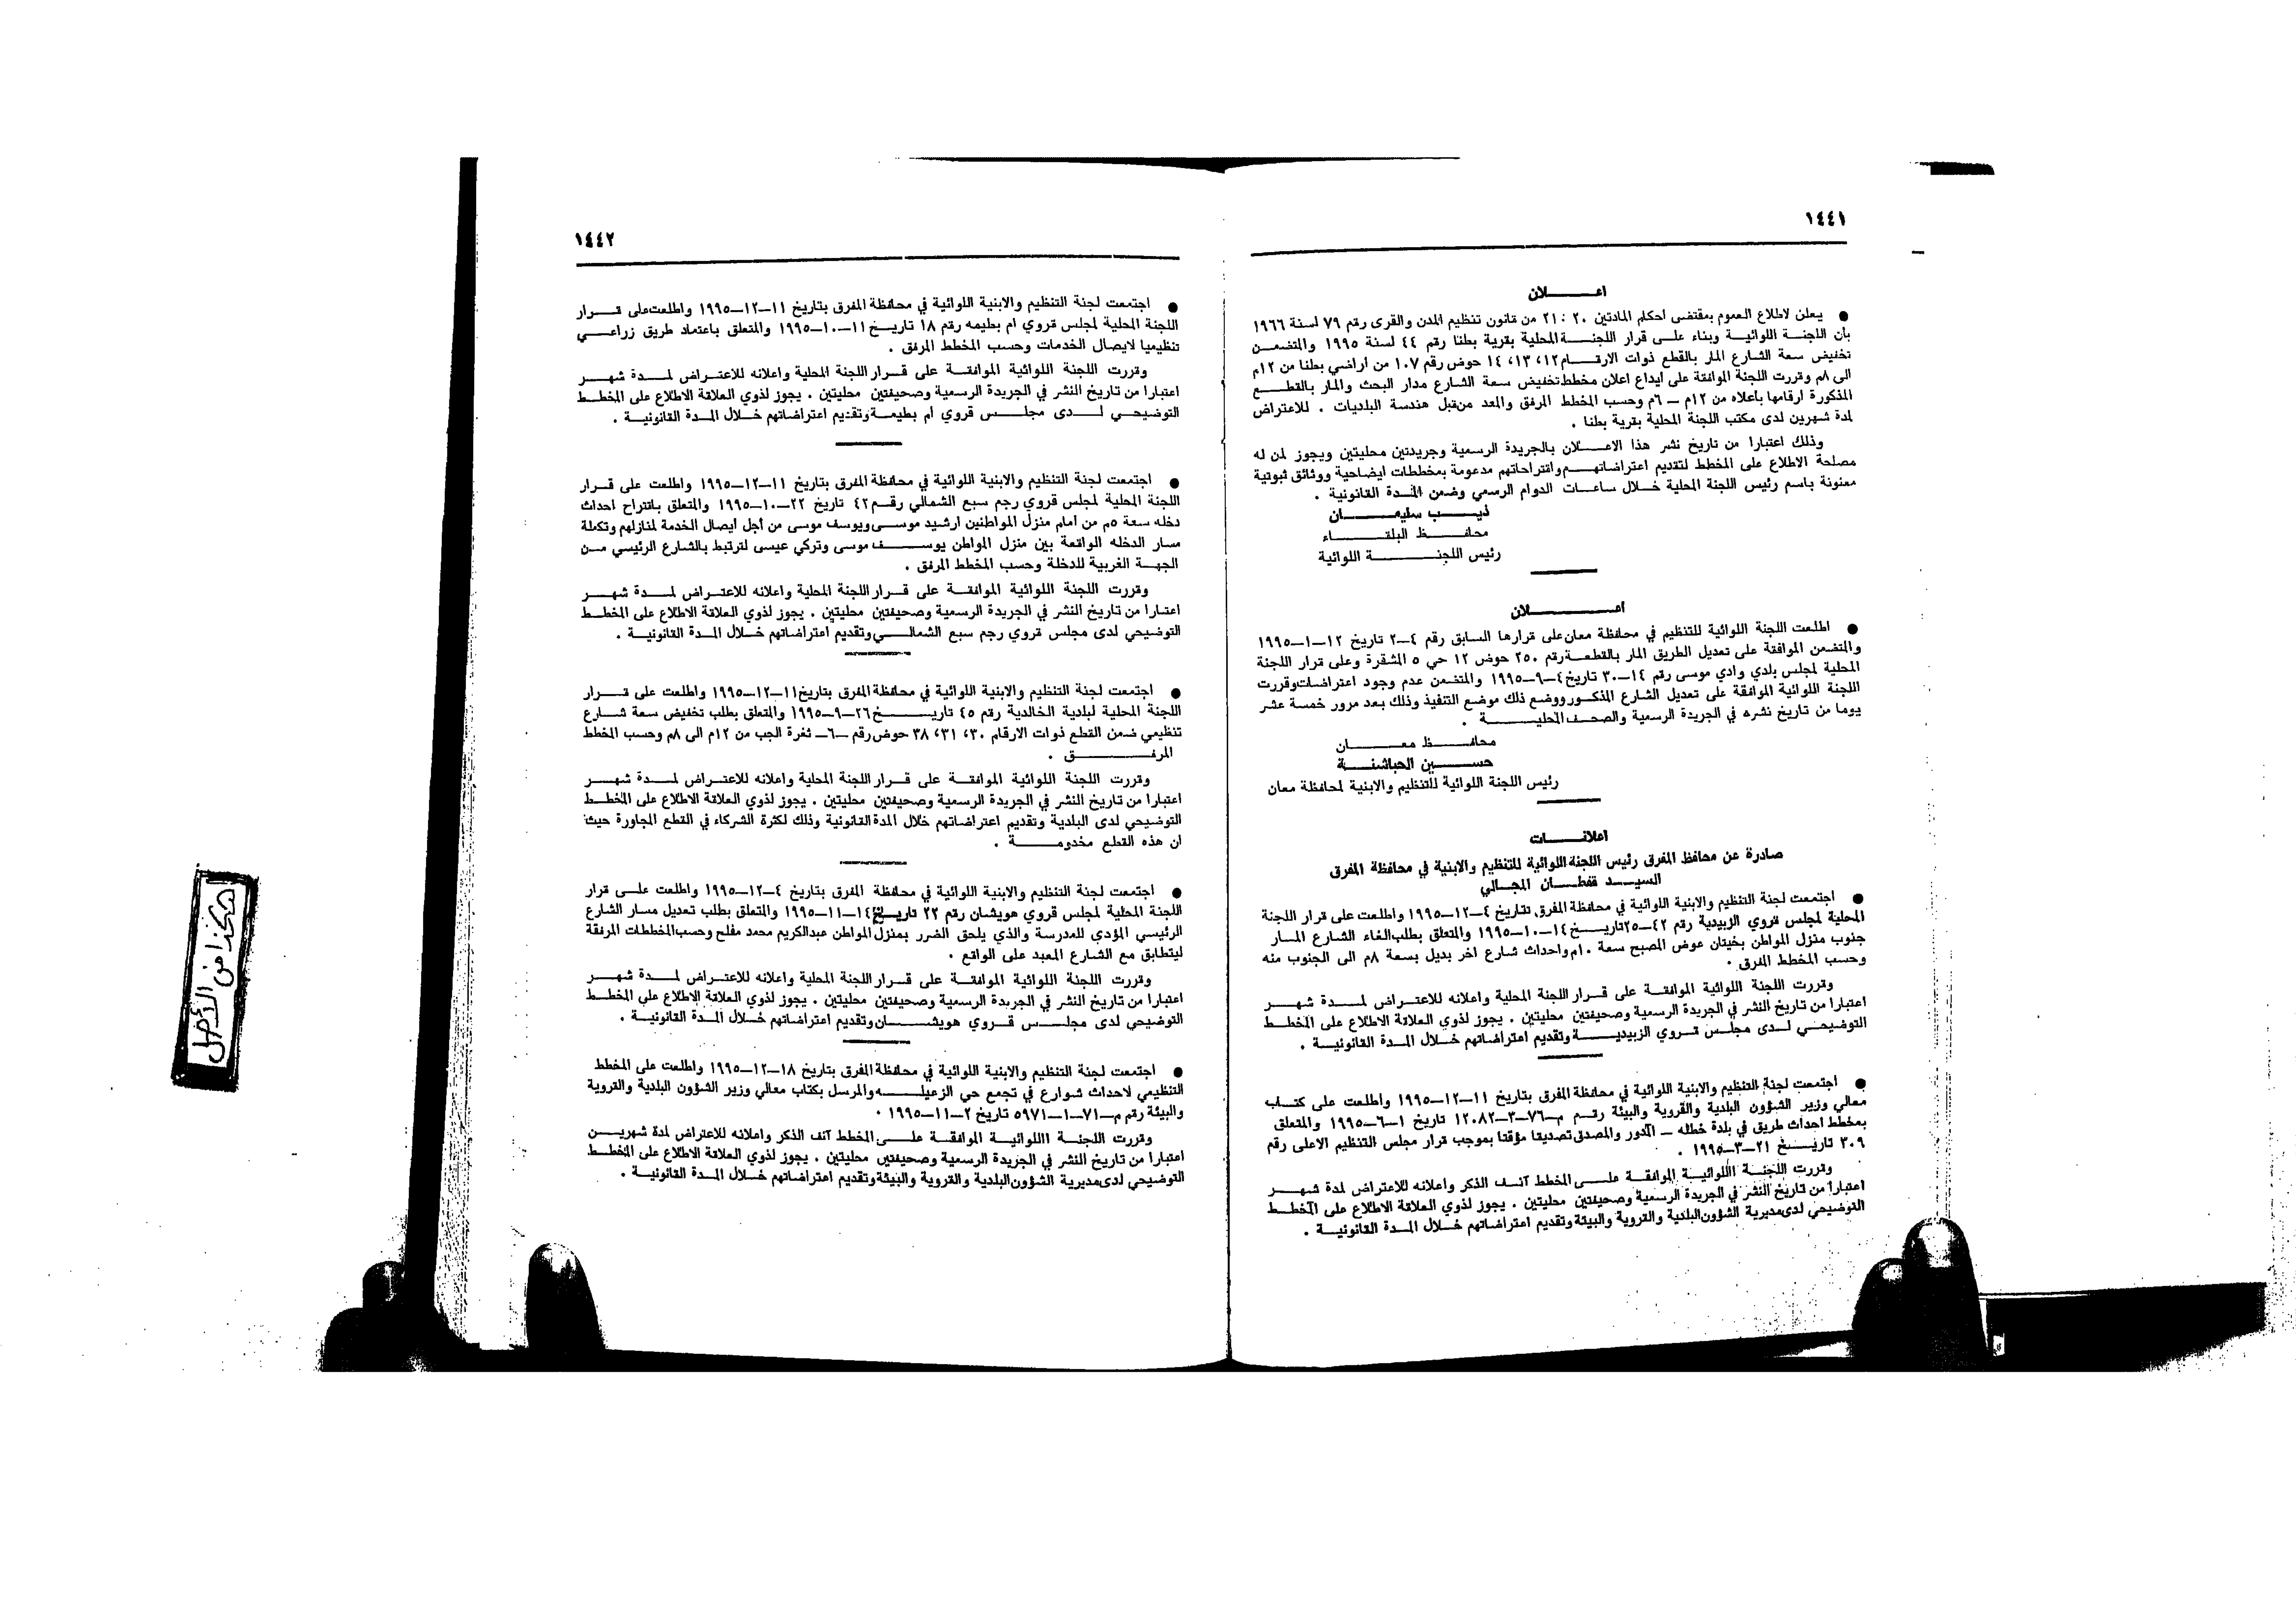 ١٤٤١
اعـــــلان
● يعلن لاطلاع العموم بمقتضى أحكام المادتين ٢٠ : ٢١ من قانون تنظيم المدن والقرى رقم ٧٩ لسنة ١٩٦٦
بأن اللجنـــة اللوائيـــة وبناء علـــى قرار اللجنـــة المحلية بقرية بطنا رقم ٤٤ لسنة ١٩٩٥ والمتضمـــن
تخفيض سعة الشارع المار بالقطع ذوات الارقـــام ١٢، ١٣، ١٤ حوض رقم ١٠٧ من أراضي بطنا من ١٢م
الى ٨م وقررت اللجنة الموافقة على ايداع اعلان مخطط تخفيض سعة الشارع مدار البحث والمار بالقطـــع
المذكورة ارقامها بأعلاه من ١٢م — ٦م وحسب المخطط المرفق والمعد من قبل هندسة البلديات . للاعتراض
لمدة شهرين لدى مكتب اللجنة المحلية بقرية بطنا .
وذلك اعتبارا من تاريخ نشر هذا الاعـــلان بالجريدة الرسمية وجريدتين محليتين ويجوز لمن له
مصلحة الاطلاع على المخطط لتقديم اعتراضاتهـــم واقتراحاتهم مدعومة بمخططات ايضاحية ووثائق ثبوتية
معنونة باسم رئيس اللجنة المحلية خـــلال ساعـــات الدوام الرسمي وضمن المـــدة القانونية .
ذيـــب سليمـــان
محافـــظ البلقـــاء
رئيس اللجنـــة اللوائية
اعـــــلان
● اطلعت اللجنة اللوائية للتنظيم في محافظة معان على قرارها السابق رقم ٤—٢ تاريخ ١٢—١—١٩٩٥
والمتضمن الموافقة على تعديل الطريق المار بالقطعـــة رقم ٢٥٠ حوض ١٢ حي ٥ المشقرة وعلى قرار اللجنة
المحلية لمجلس بلدي وادي موسى رقم ١٤—٣٠ تاريخ ٤—٩—١٩٩٥ والمتضمـــن عدم وجود اعتراضات وقررت
اللجنة اللوائية الموافقة على تعديل الشارع المذكـــور ووضع ذلك موضع التنفيذ وذلك بعد مرور خمسة عشر
يوما من تاريخ نشره في الجريدة الرسمية والصحـــف المحليـــة .
محافـــظ معـــان
حســـين الحباشنـــة
رئيس اللجنة اللوائية للتنظيم والابنية لمحافظة معان
اعلانـــات
صادرة عن محافظ المفرق رئيس اللجنة اللوائية للتنظيم والابنية في محافظة المفرق
السيـــد قفطـــان المجـــالي
● اجتمعت لجنة التنظيم والابنية اللوائية في محافظة المفرق بتاريخ ٤—١٢—١٩٩٥ واطلعت على قرار اللجنة
المحلية لمجلس قروي الزبيدية رقم ٤٢—٢٥ تاريـــخ ١٤—١٠—١٩٩٥ والمتعلق بطلب الغاء الشارع المـــار
جنوب منزل المواطن بخيتان عوض المصبح سعة ١٠م واحداث شارع اخر بديل بسعة ٨م الى الجنوب منه
وحسب المخطط المرفق .
وقررت اللجنة اللوائية الموافقـــة على قـــرار اللجنة المحلية واعلانه للاعتـــراض لمـــدة شهـــر
اعتبارا من تاريخ النشر في الجريدة الرسمية وصحيفتين محليتين . يجوز لذوي العلاقة الاطلاع على المخطـــط
التوضيحـــي لـــدى مجلـــس قـــروي الزبيديـــة وتقديم اعتراضاتهم خـــلال المـــدة القانونيـــة .
● اجتمعت لجنة التنظيم والابنية اللوائية في محافظة المفرق بتاريخ ١١—١٢—١٩٩٥ واطلعت على كتـــاب
معالي وزير الشؤون البلدية والقروية والبيئة رقـــم م—٧٦—٣—١٢٠٨٢ تاريخ ١—٦—١٩٩٥ والمتعلق
بمخطط احداث طريق في بلدة خطله — الكدور والمصدق تصديقا مؤقتا بموجب قرار مجلس التنظيم الاعلى رقم
٣٠٩ تاريـــخ ٢١—٣—١٩٩٥ .
وقررت اللجنـــة اللوائيـــة الموافقـــة علـــى المخطط آنـــف الذكر واعلانه للاعتراض لمدة شهـــر
اعتبارا من تاريخ النشر في الجريدة الرسمية وصحيفتين محليتين . يجوز لذوي العلاقة الاطلاع على المخطـــط
التوضيحي لدى مديرية الشؤون البلدية والقروية والبيئة وتقديم اعتراضاتهم خـــلال المـــدة القانونيـــة .
١٤٤٢
● اجتمعت لجنة التنظيم والابنية اللوائية في محافظة المفرق بتاريخ ١١—١٢—١٩٩٥ واطلعت على قـــرار
اللجنة المحلية لمجلس قروي ام بطيمه رقم ١٨ تاريـــخ ١١—١٠—١٩٩٥ والمتعلق باعتماد طريق زراعـــي
تنظيميا لايصال الخدمات وحسب المخطط المرفق .
وقررت اللجنة اللوائية الموافقـــة على قـــرار اللجنة المحلية واعلانه للاعتـــراض لمـــدة شهـــر
اعتبارا من تاريخ النشر في الجريدة الرسمية وصحيفتين محليتين . يجوز لذوي العلاقة الاطلاع على المخطـــط
التوضيحـــي لـــدى مجلـــس قروي أم بطيمـــة وتقديم اعتراضاتهم خـــلال المـــدة القانونيـــة .
● اجتمعت لجنة التنظيم والابنية اللوائية في محافظة المفرق بتاريخ ١١—١٢—١٩٩٥ واطلعت على قـــرار
اللجنة المحلية لمجلس قروي رجم سبع الشمالي رقـــم ٤٢ تاريخ ٢٢—١٠—١٩٩٥ والمتعلق باقتراح احداث
دخله سعة ٥م من أمام منزل المواطنين ارشيد موســـى ويوسف موسى من أجل ايصال الخدمة لمنازلهم وتكملة
مسار الدخله الواقعة بين منزل المواطن يوســـف موسى وتركي عيسى لترتبط بالشارع الرئيسي مـــن
الجهـــة الغربية للدخلة وحسب المخطط المرفق .
وقررت اللجنة اللوائية الموافقـــة على قـــرار اللجنة المحلية واعلانه للاعتـــراض لمـــدة شهـــر
اعتبارا من تاريخ النشر في الجريدة الرسمية وصحيفتين محليتين . يجوز لذوي العلاقة الاطلاع على المخطـــط
التوضيحي لدى مجلس قروي رجم سبع الشمالـــي وتقديم اعتراضاتهم خـــلال المـــدة القانونيـــة .
● اجتمعت لجنة التنظيم والابنية اللوائية في محافظة المفرق بتاريخ ١١—١٢—١٩٩٥ واطلعت على قـــرار
اللجنة المحلية لبلدية الخالدية رقم ٤٥ تاريـــخ ٢٦—٩—١٩٩٥ والمتعلق بطلب تخفيض سعة شـــارع
تنظيمي ضمن القطع ذوات الارقام ٣٠، ٣١، ٣٨ حوض رقم —٦— ثغرة الجب من ١٢م الى ٨م وحسب المخطط
المرفـــق .
وقررت اللجنة اللوائية الموافقـــة على قـــرار اللجنة المحلية واعلانه للاعتـــراض لمـــدة شهـــر
اعتبارا من تاريخ النشر في الجريدة الرسمية وصحيفتين محليتين . يجوز لذوي العلاقة الاطلاع على المخطـــط
التوضيحي لدى البلدية وتقديم اعتراضاتهم خلال المدة القانونية وذلك لكثرة الشركاء في القطع المجاورة حيث
ان هذه القطع مخدومـــة .
● اجتمعت لجنة التنظيم والابنية اللوائية في محافظة المفرق بتاريخ ٤—١٢—١٩٩٥ واطلعت علـــى قرار
اللجنة المحلية لمجلس قروي هويشان رقم ٢٢ تاريـــخ ١٤—١١—١٩٩٥ والمتعلق بطلب تعديل مسار الشارع
الرئيسي المؤدي للمدرسة والذي يلحق الضرر بمنزل المواطن عبدالكريم محمد مفلح وحسب المخططات المرفقة
ليتطابق مع الشارع المعبد على الواقع .
وقررت اللجنة اللوائية الموافقـــة على قـــرار اللجنة المحلية واعلانه للاعتـــراض لمـــدة شهـــر
اعتبارا من تاريخ النشر في الجريدة الرسمية وصحيفتين محليتين . يجوز لذوي العلاقة الاطلاع على المخطـــط
التوضيحي لدى مجلـــس قـــروي هويشـــان وتقديم اعتراضاتهم خـــلال المـــدة القانونيـــة .
● اجتمعت لجنة التنظيم والابنية اللوائية في محافظة المفرق بتاريخ ١٨—١٢—١٩٩٥ واطلعت على المخطط
التنظيمي لاحداث شوارع في تجمع حي الزعيلـــه والمرسل بكتاب معالي وزير الشؤون البلدية والقروية
والبيئة رقم م—٧١—١—٥٩٧١ تاريخ ٢—١١—١٩٩٥ .
وقررت اللجنـــة االلوائيـــة الموافقـــة علـــى المخطط آنف الذكر واعلانه للاعتراض لمدة شهريـــن
اعتبارا من تاريخ النشر في الجريدة الرسمية وصحيفتين محليتين . يجوز لذوي العلاقة الاطلاع على المخطـــط
التوضيحي لدى مديرية الشؤون البلدية والقروية والبيئة وتقديم اعتراضاتهم خـــلال المـــدة القانونيـــة .
هكذا من الأصل